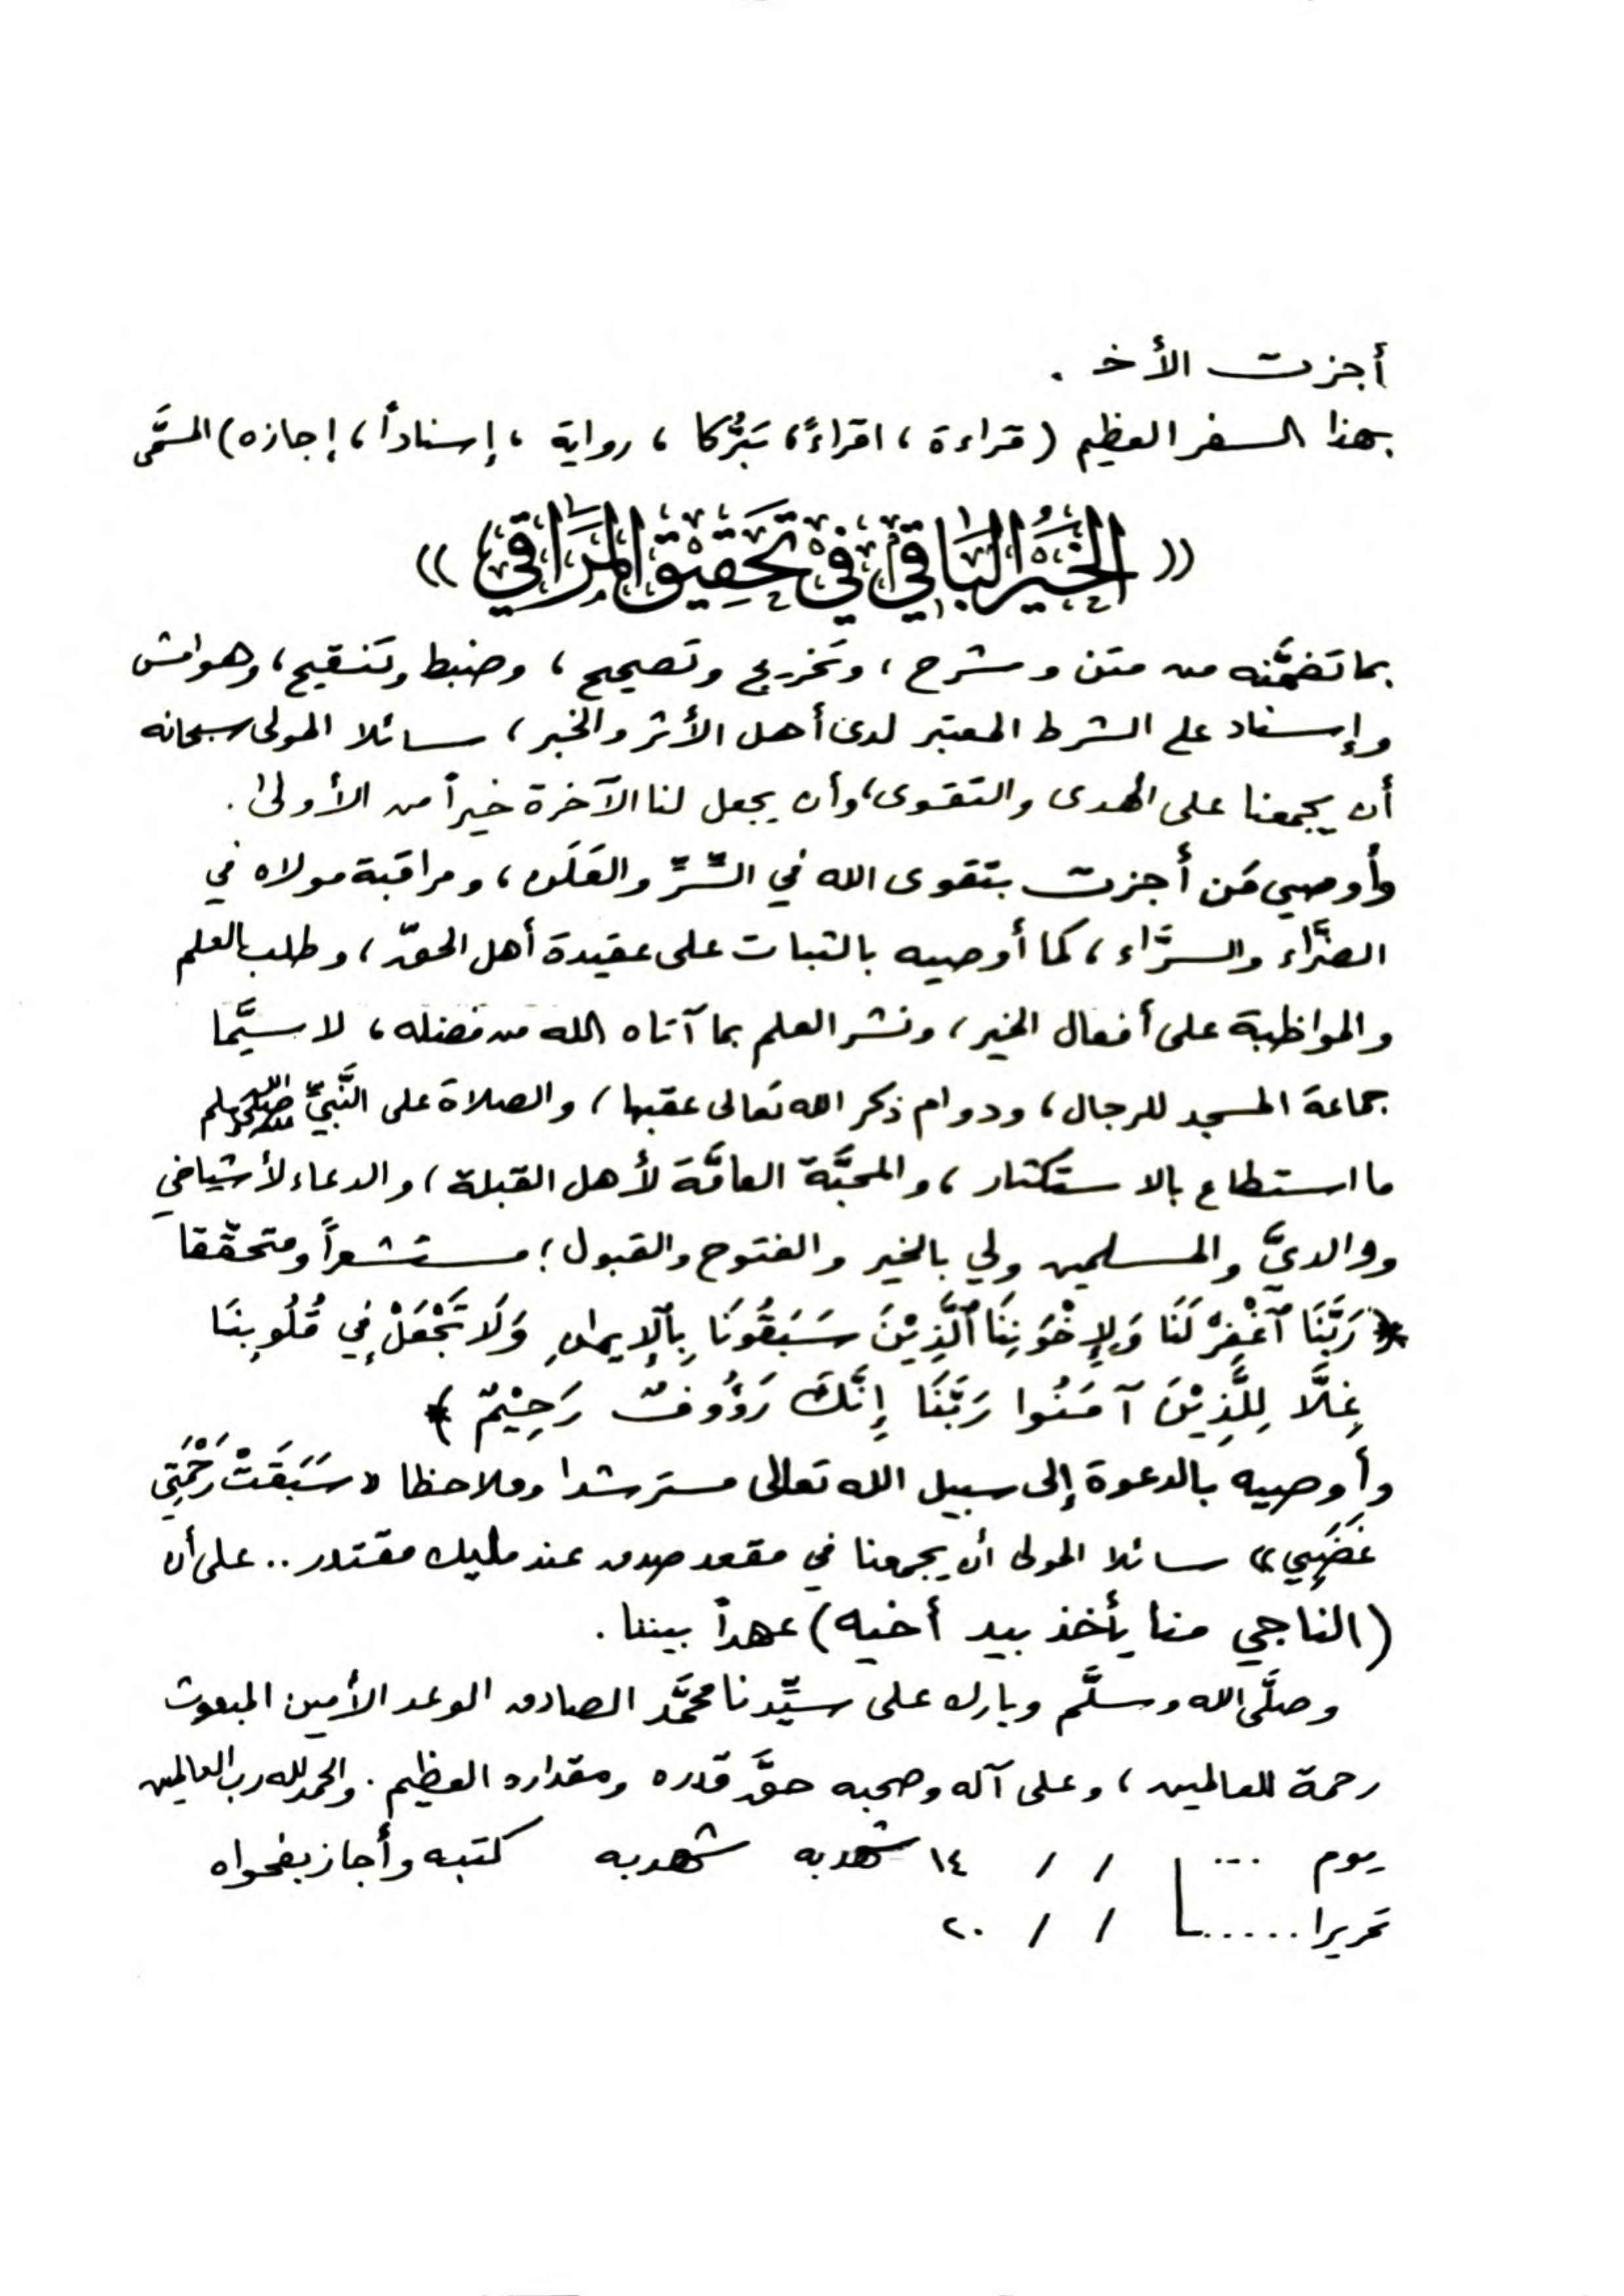 أجزت الأخ .
بهذا السفر العظيم (قراءة ، اقراءً ، تبَرُّكا ، رواية ، إسناداً ، إجازه) المسمَّى
«الخَيْرُ البَاقِي فِي تَحْقِيْقِ المَرَاقِي»
بما تضمَّنه من متن وشرح ، وتخريج وتصحيح ، وضبط وتنقيح ، وهوامش
وإسناد على الشرط المعتبر لدى أهل الأثر والخبر ، سائلا المولى سبحانه
أن يجمعنا على الهدى والتقوى ، وأن يجعل لنا الآخرة خيراً من الأولى .
وأوصي مَن أجزت بتقوى الله في السِّرِّ والعَلَن ، ومراقبة مولاه في
الضرَّاء والسرَّاء ، كما أوصيه بالثبات على عقيدة أهل الحقّ ، وطلب العلم
والمواظبة على أفعال الخير ، ونشر العلم بما آتاه الله من فضله ، لا سيَّما
جماعة المسجد للرجال ، ودوام ذكر الله تعالى عقبها ، والصلاة على النَّبيِّ صلى الله عليه وسلم
ما استطاع بالاستكثار ، والمحبَّة العامَّة لأهل القبلة ، والدعاء لأشياخي
ووالديَّ والمسلمين ولي بالخير والفتوح والقبول ؛ مستشعراً ومتحقّقا
﴿ رَبَّنَا ٱغْفِرْ لَنَا وَلِإِخْوَٰنِنَا ٱلَّذِيْنَ سَبَقُونَا بِٱلْإِيمَٰنِ وَلَا تَجْعَلْ فِي قُلُوبِنَا
غِلًّا لِلَّذِيْنَ آمَنُوا رَبَّنَا إِنَّكَ رَؤُوفٌ رَحِيْمٌ ﴾
وأوصيه بالدعوة إلى سبيل الله تعالى مسترشدا وملاحظا «سَبَقَتْ رَحْمَتِي
غَضَبِي» سائلا المولى أن يجمعنا في مقعد صدق عند مليك مقتدر .. على أن
(الناجي منا يأخذ بيد أخيه) عهداً بيننا .
وصلَّى الله وسلَّم وبارك على سيِّدنا محمَّد الصادق الوعد الأمين المبعوث
رحمة للعالمين ، وعلى آله وصحبه حقَّ قدره ومقداره العظيم . والحمد لله رب العالمين
يوم ... / / ١٤ شهد به شهد به كتبه وأجاز بفحواه
تحريرا ...... / / ٢٠